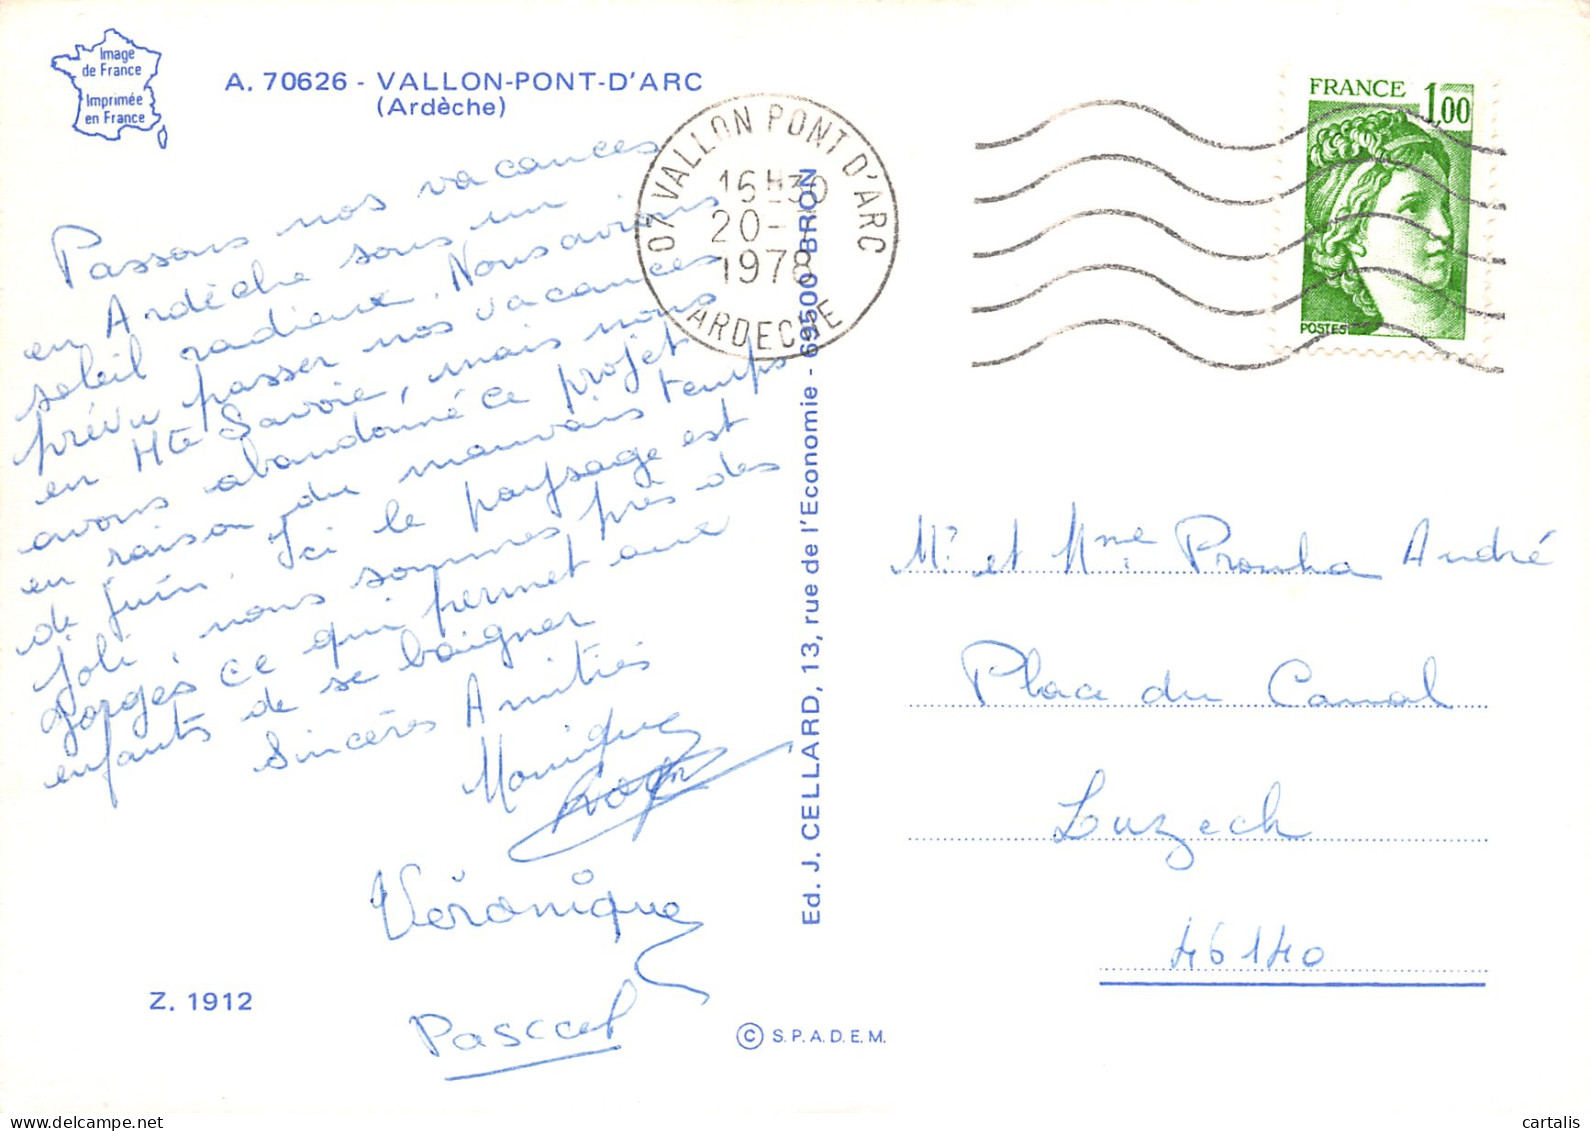 Image
de France
Imprimée
en France
A. 70626 - VALLON-PONT-D'ARC
(Ardèche)
Passons nos vacances
en Ardèche sous un
soleil radieux. Nous avions
prévu passer nos vacances
en Hte Savoie, mais nous
avons abandonné ce projet
en raison du mauvais temps
de juin. Ici le paysage est
joli, nous sommes près des
gorges ce qui permet aux
enfants de se baigner
Sincères Amitiés
Monique
Véronique
Pascal
Z. 1912
© S.P.A.D.E.M.
Ed. J. CELLARD, 13, rue de l'Economie - 69500 BRON
07 VALLON PONT D'ARC
16H30
20-
1978
ARDECHE
FRANCE 1,00
POSTES
Mr et Mme André
Place du Canal
Luzech
46140
cartalis